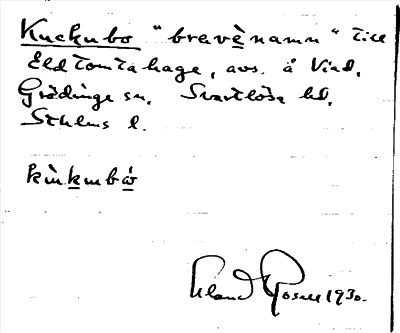 Kuckubo "brevènamn" till
Eldtomtahage, avs. å Viad,
Grödinge sn. Svartlösa hd.
Sthlms l.
kùkubó
Roland Rosell 1930.